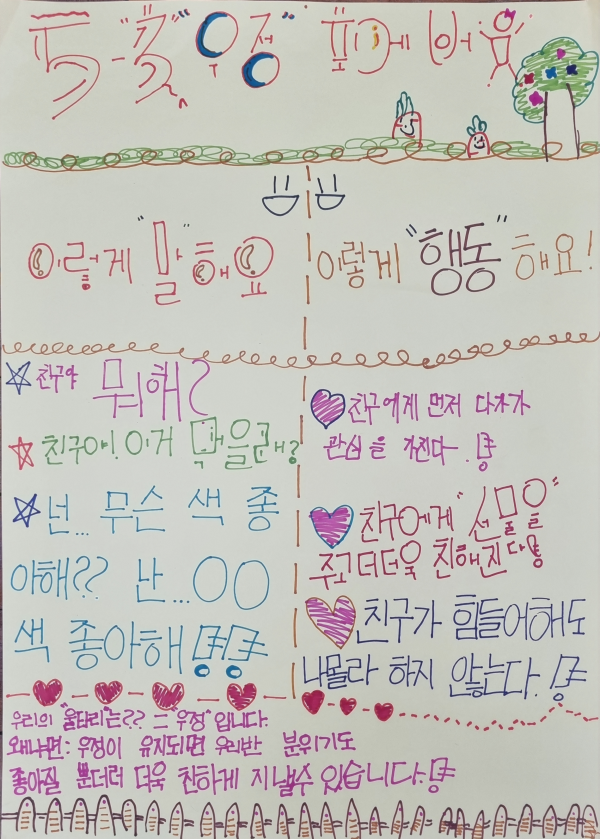 "우정"
이렇게 "말" 해요
☆ 친구야 뭐해?
☆ 친구야! 이거 먹을래?
☆ 넌... 무슨 색 좋
아해?? 난...○○
색 좋아해!!
이렇게 "행동" 해요!
♥ 친구에게 먼저 다가가
관심을 가진다.!
♥ 친구에게 "선물을
주고 더더욱 친해진다!
♥ 친구가 힘들어해도
나몰라 하지 않는다.!
우리의 "울타리"는?? = "우정"입니다.
왜냐면: 우정이 유지되면 우리반 분위기도
좋아질 뿐더러 더욱 친하게 지낼수 있습니다.!